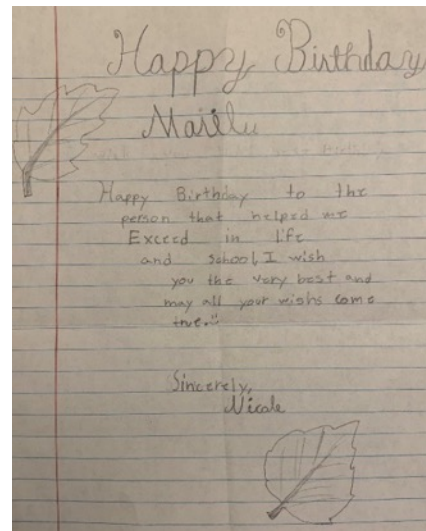 Happy Birthday
Mailu
Happy Birthday to the
person that helped me
Exceed in life
and school, I wish
you the very best and
may all your wishs come
true.
Sincerely,
Nicole